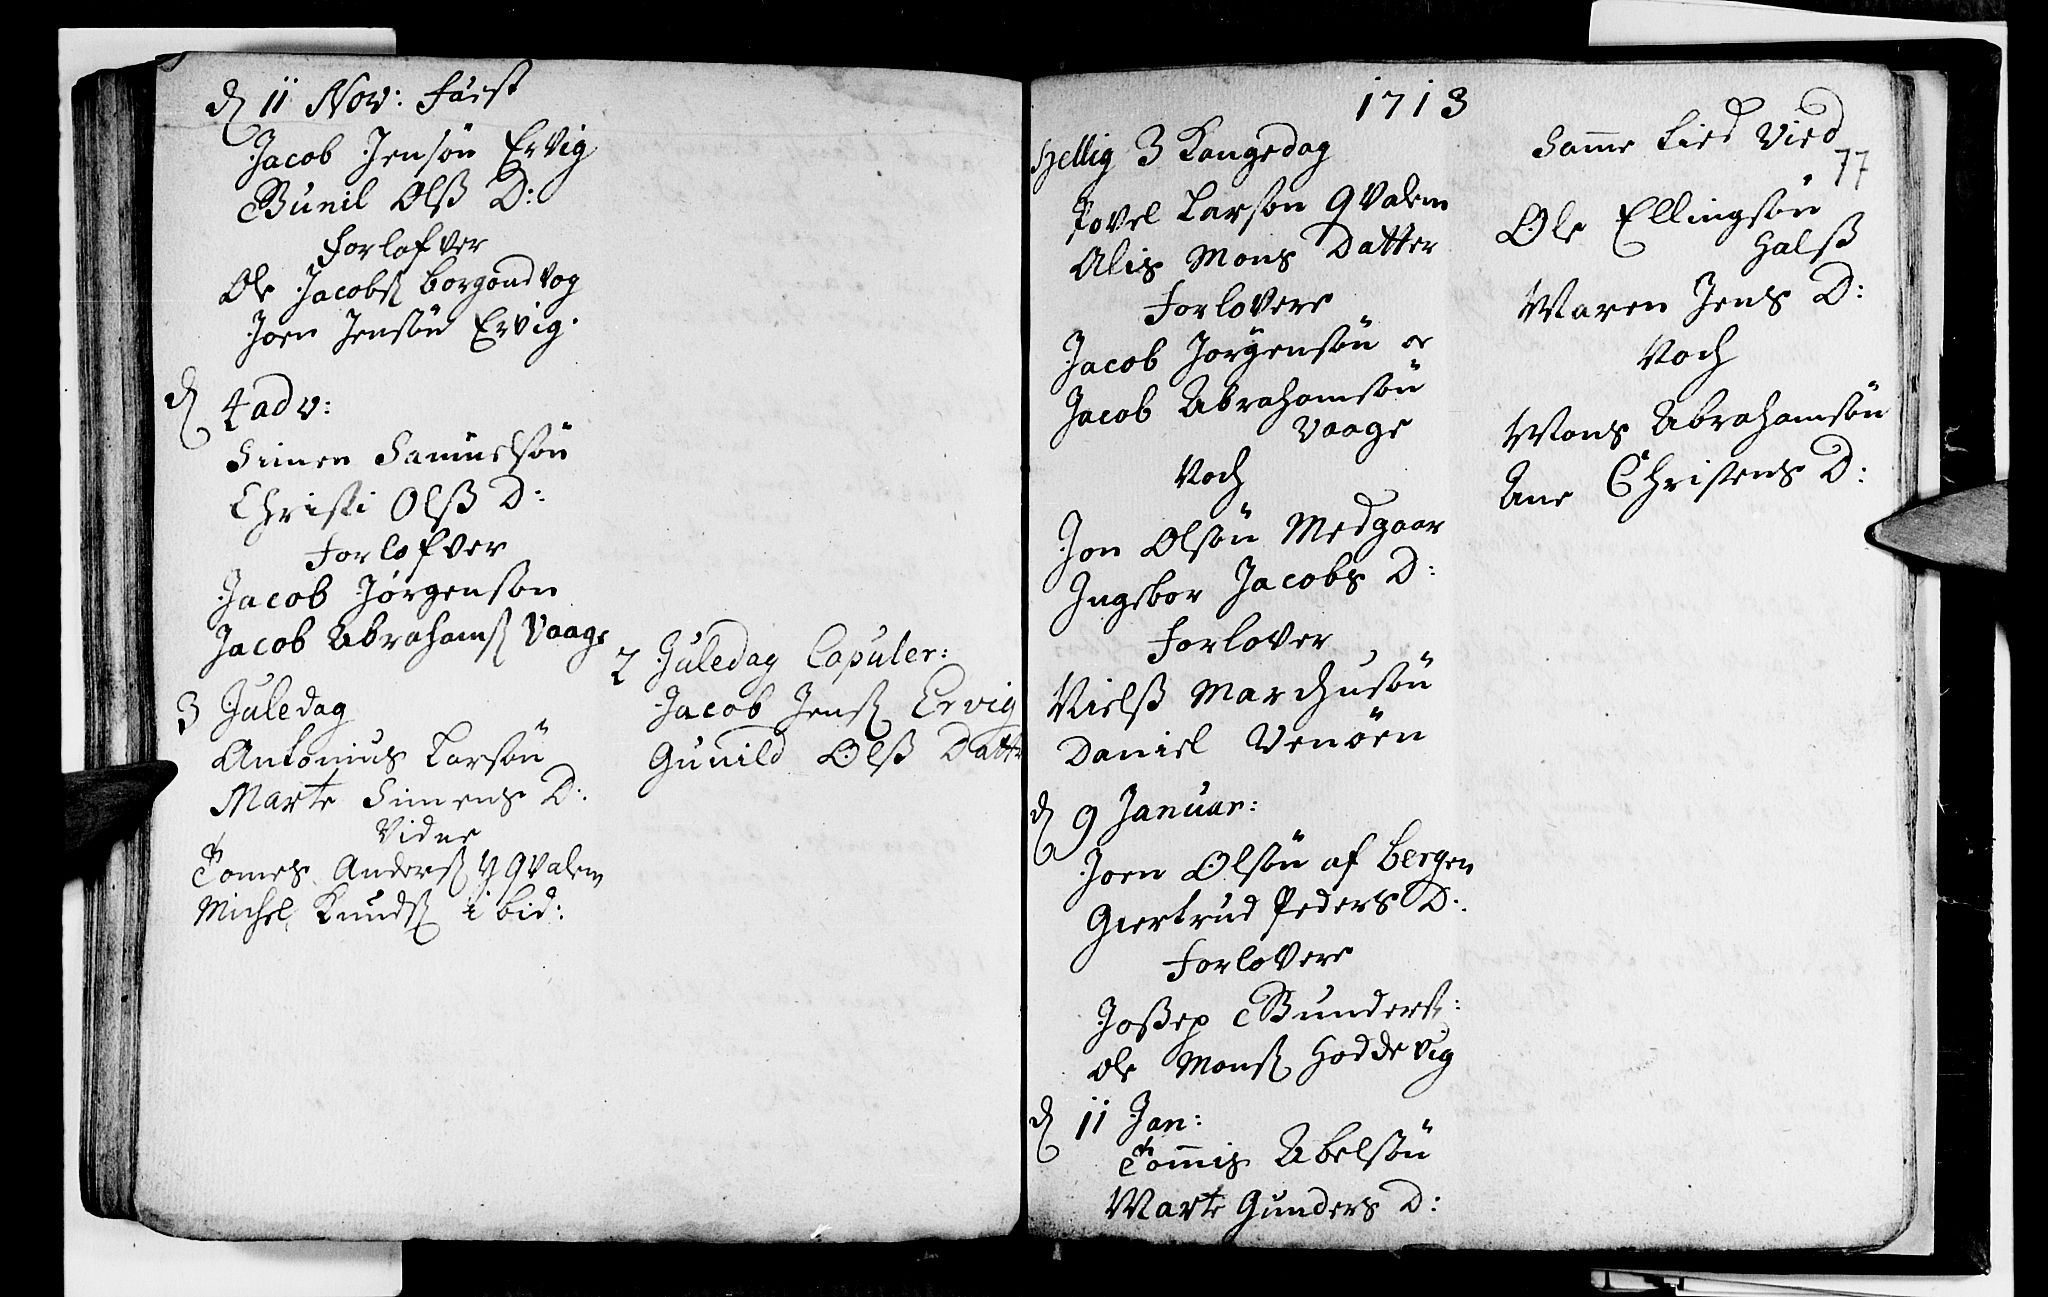 d 11 Nov: fæst
Jacob Jensøn Ervig
Gunil Olß D:
Forlofver
Ole Jacobs borgundvog
Joen Jensøn Ervig.
d 4 adv:
Simen Samuelsøn
Christi Olß D:
Forlofver
Jacob Jørgenson
Jacob Abrahams Vaage
3 Juledag
Antonius Larsøn
Marte Simens D:
Vidne
Tomes Anders Qvalem
Michel Knuds ibid:
2 Juledag Copuler:
Jacob Jens Ervig
Gunild Olß Datter
1713
Hellig 3 Kongedag
Povel Larson Qvalem
Alis Mons Datter
Forlovere
Jacob Jørgensøn oc
Jacob Abrahamsøn
Vaage
Noch
Jon Olsøn Medgaar
Ingebor Jacobs D:
Forlover
Nielß Marchusøn
Daniel Venøen
d 9 Januar:
Joen Olsøn af bergen
Giertrud Peders D:
Forlovere
Joßep Gunders:
Ole Mons Hoddevig
d 11 Jan:
Tommis Abelsøn
Marte Gunders D:
Samme tied Vied
77
Ole Ellingsøn
Halß
Maren Jens D:
Noch
Mons Abrahamsøn
Ane Christens D: